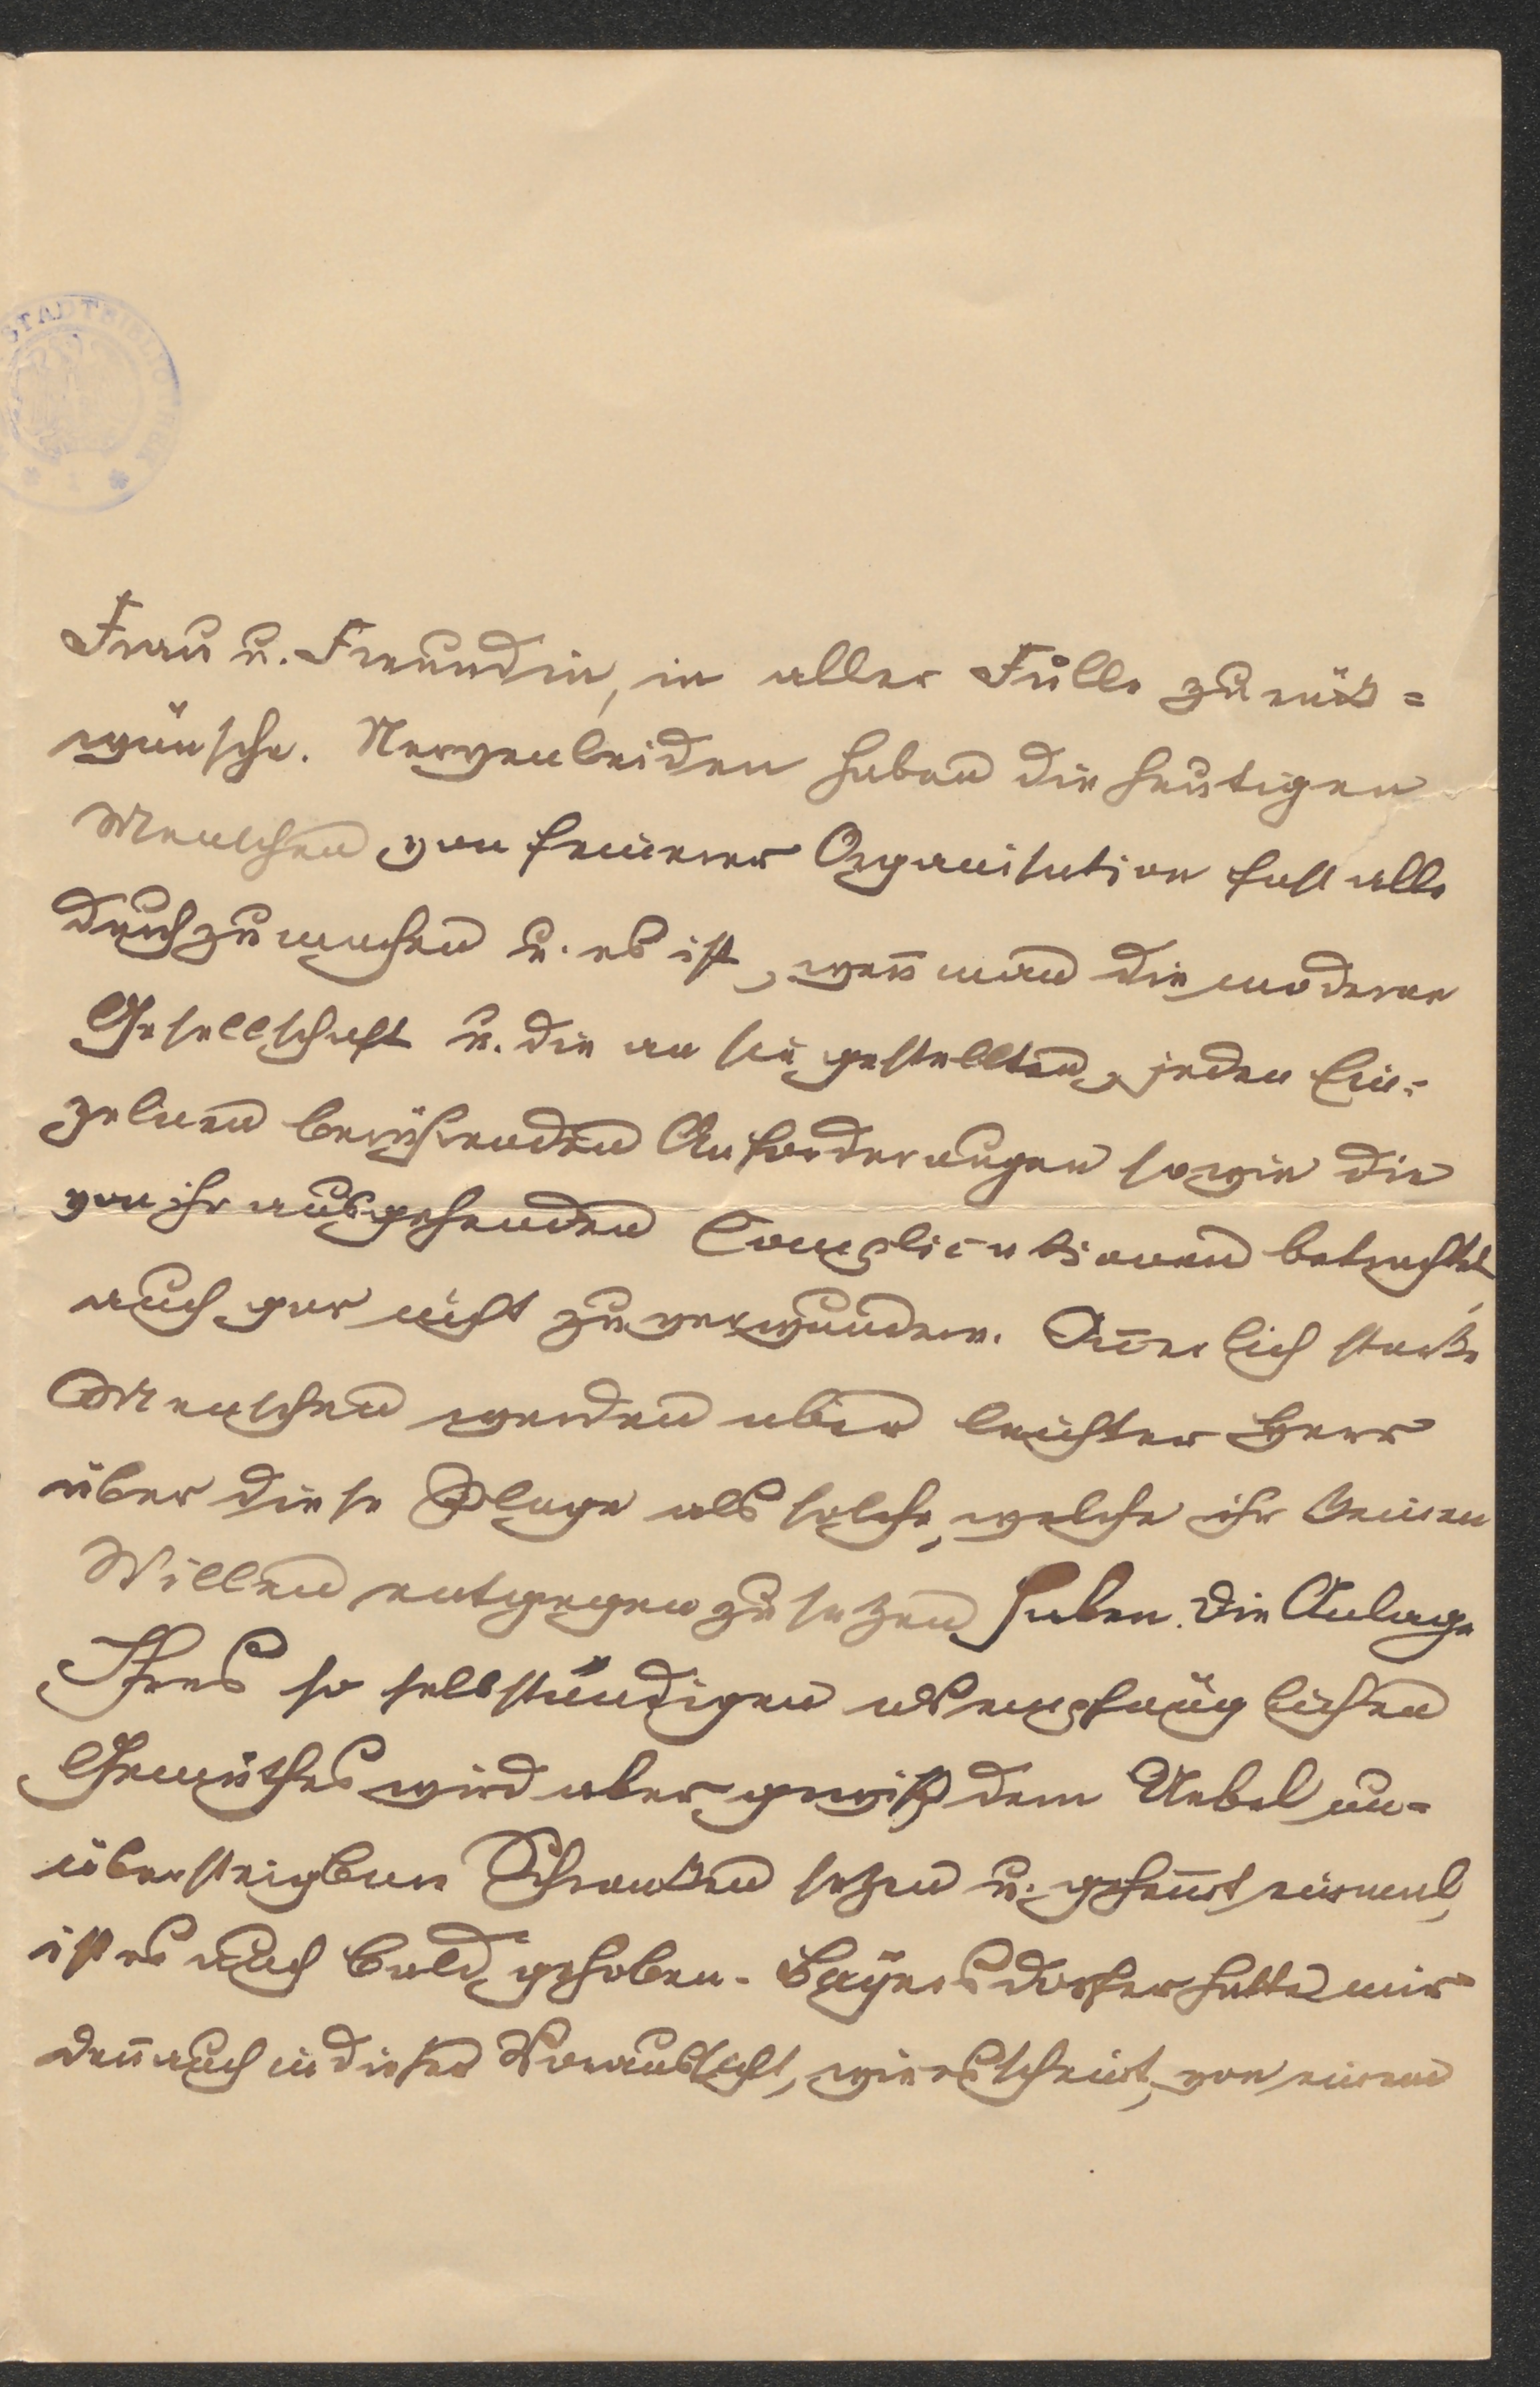 STADTBIBLIOTHEK
Frau u. Freundin, in aller Fülle zurük=
wünsche. Nervenleiden haben die heutigen
Menschen von feinerer Organisation fast alle
durchzumachen u. es ist, wen̄ man die moderne
Gesellschaft u. die an sie gestellten, jeden Ein=
zelnen berührenden Anforderungen sowie die
von ihr ausgehenden Complicationen betrachtet,
auch gar nicht zu verwundern. Iñerlich starke
Menschen werden aber leichter Herr
über diese Plage als solche, welche ihr keinen
Willen entgegenzusetzen haben. Die Anlage
Ihres so selbständigen als empfänglichen
Gemüthes wird aber gewiß dem Uebel un=
übersteigbare Schranken setzen u. gehem̄t einmal,
ist es auch bald gehoben. Bayersdorfer hatte mir
den̄ auch in dieser Voraussicht, wie es scheint, von einem